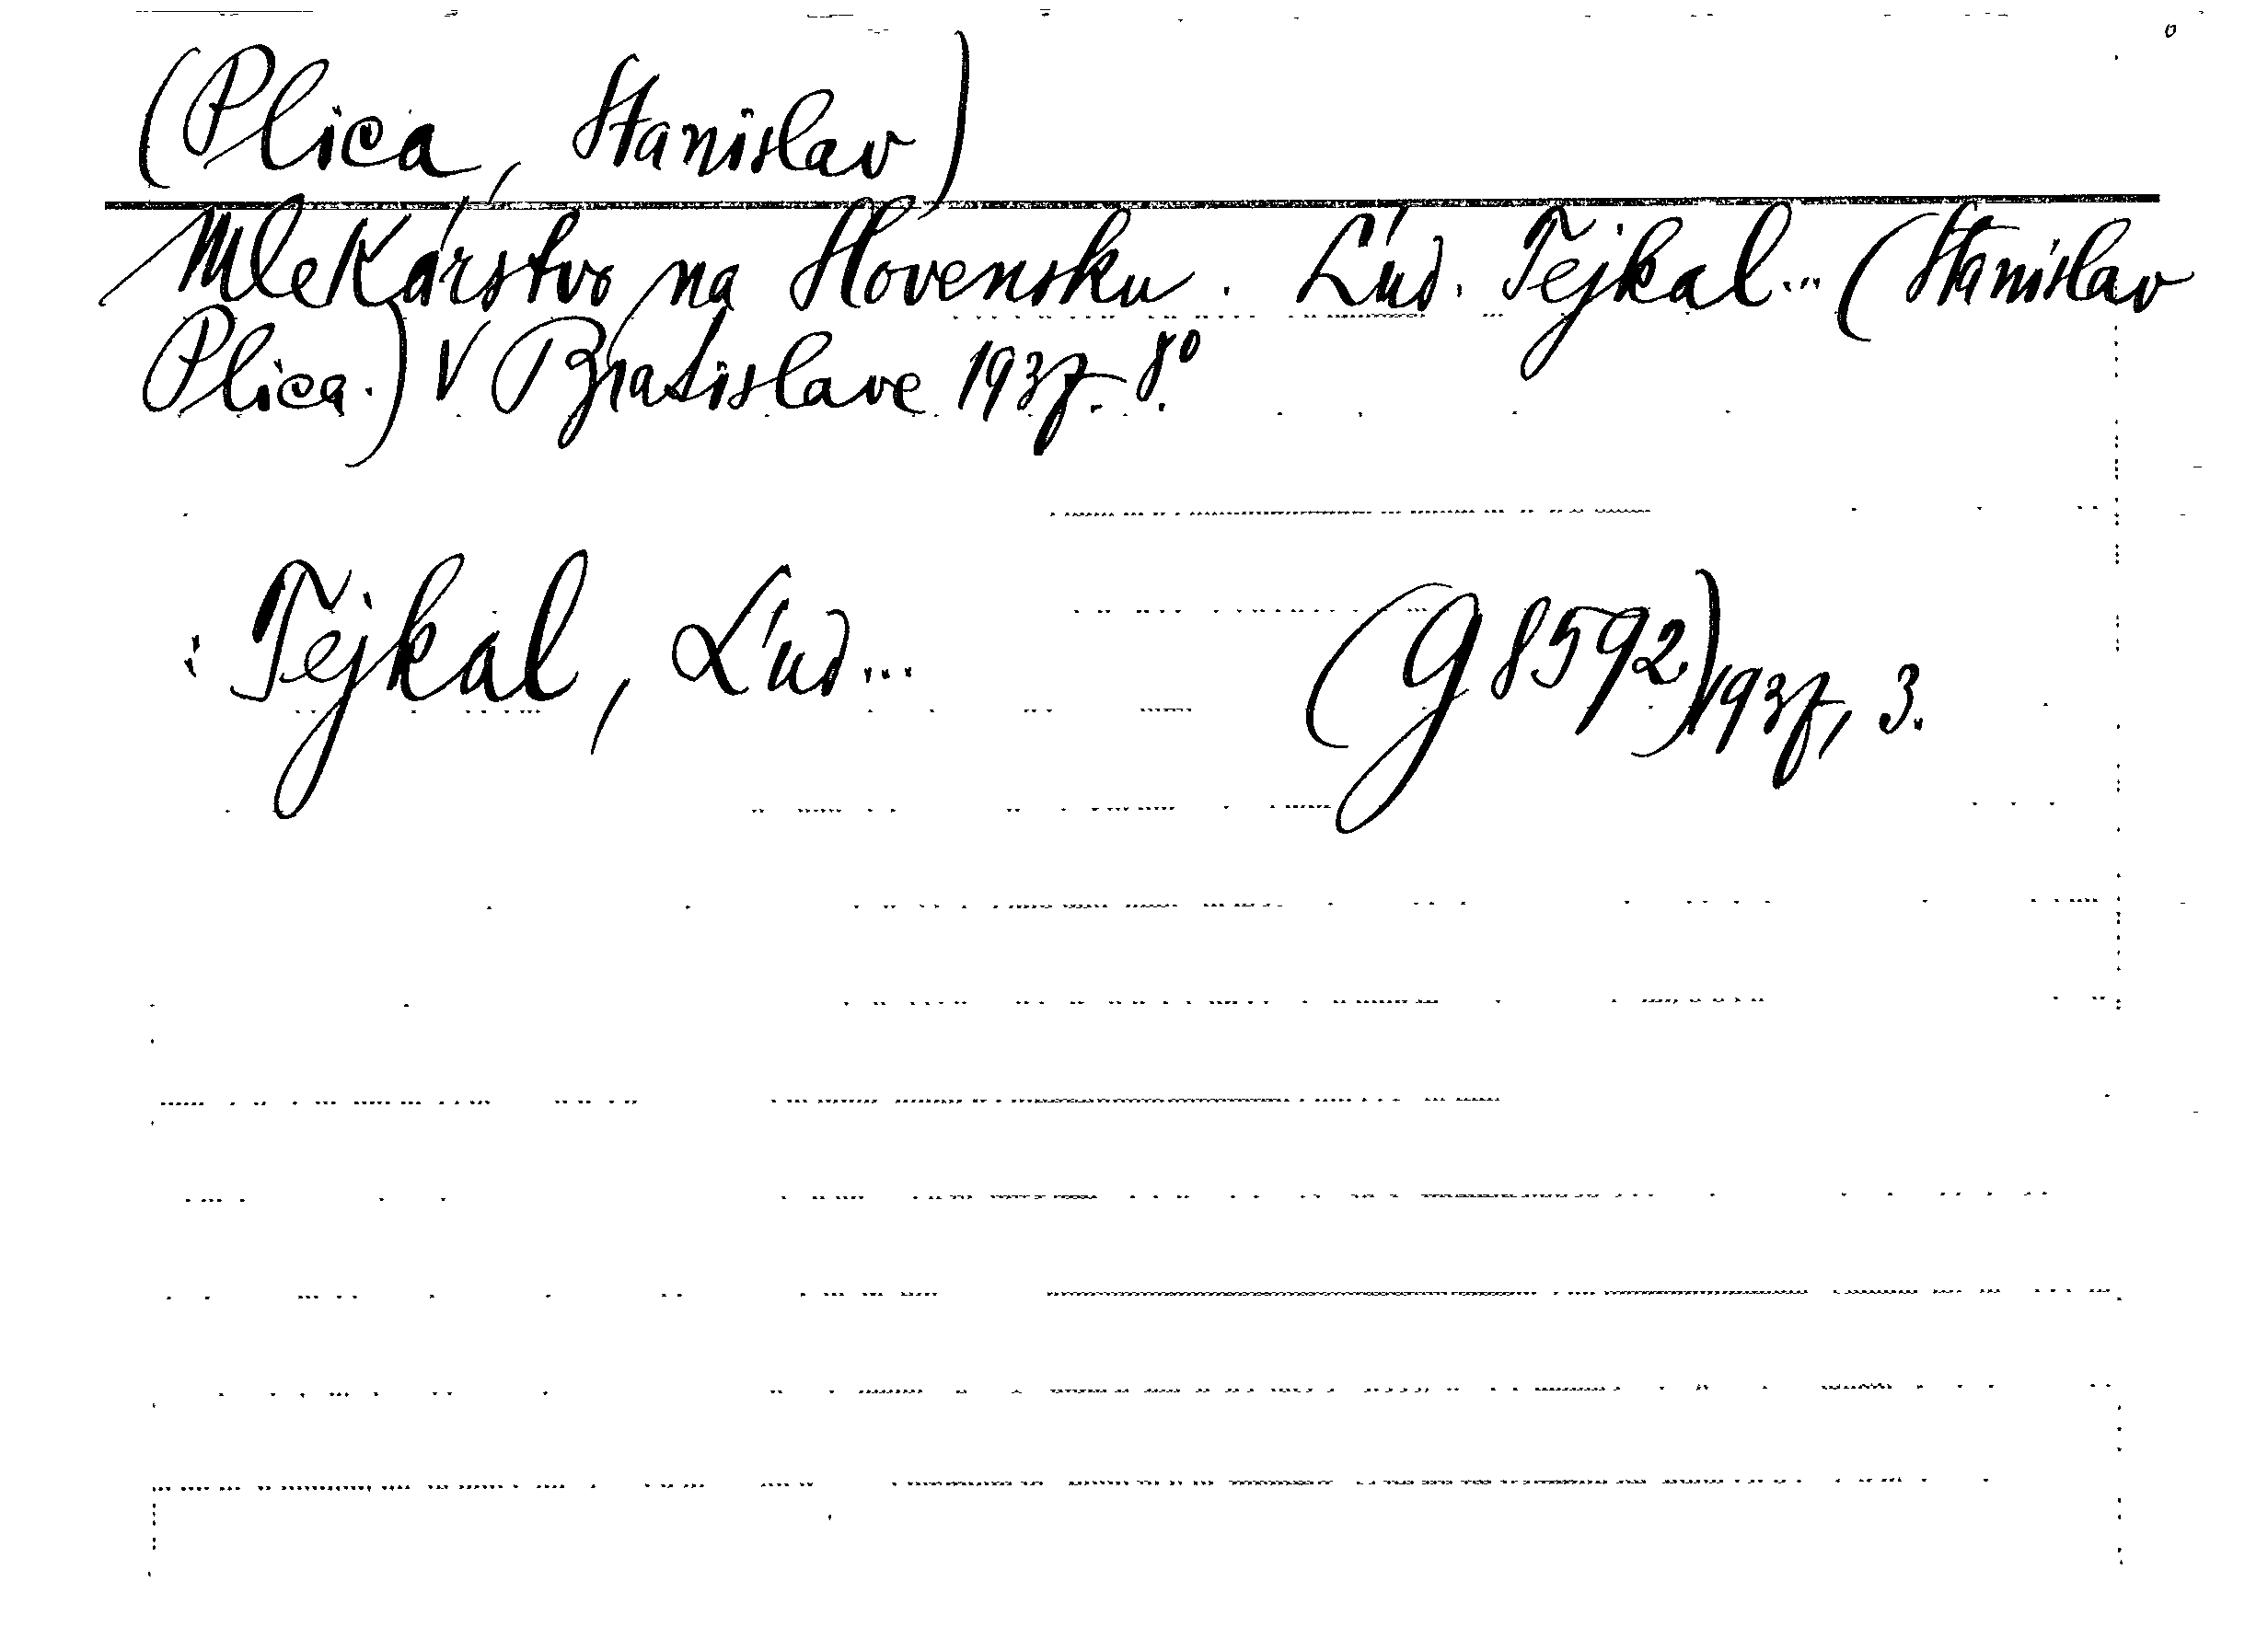 (Plica, Stanislav)
Mlekárstvo na Slovensku. Ľud. Tejkal... (Stanislav
Plica.) V Bratislave 1937. 8°.
: Tejkal, Ľud...
(G 8592) 1937, 3.